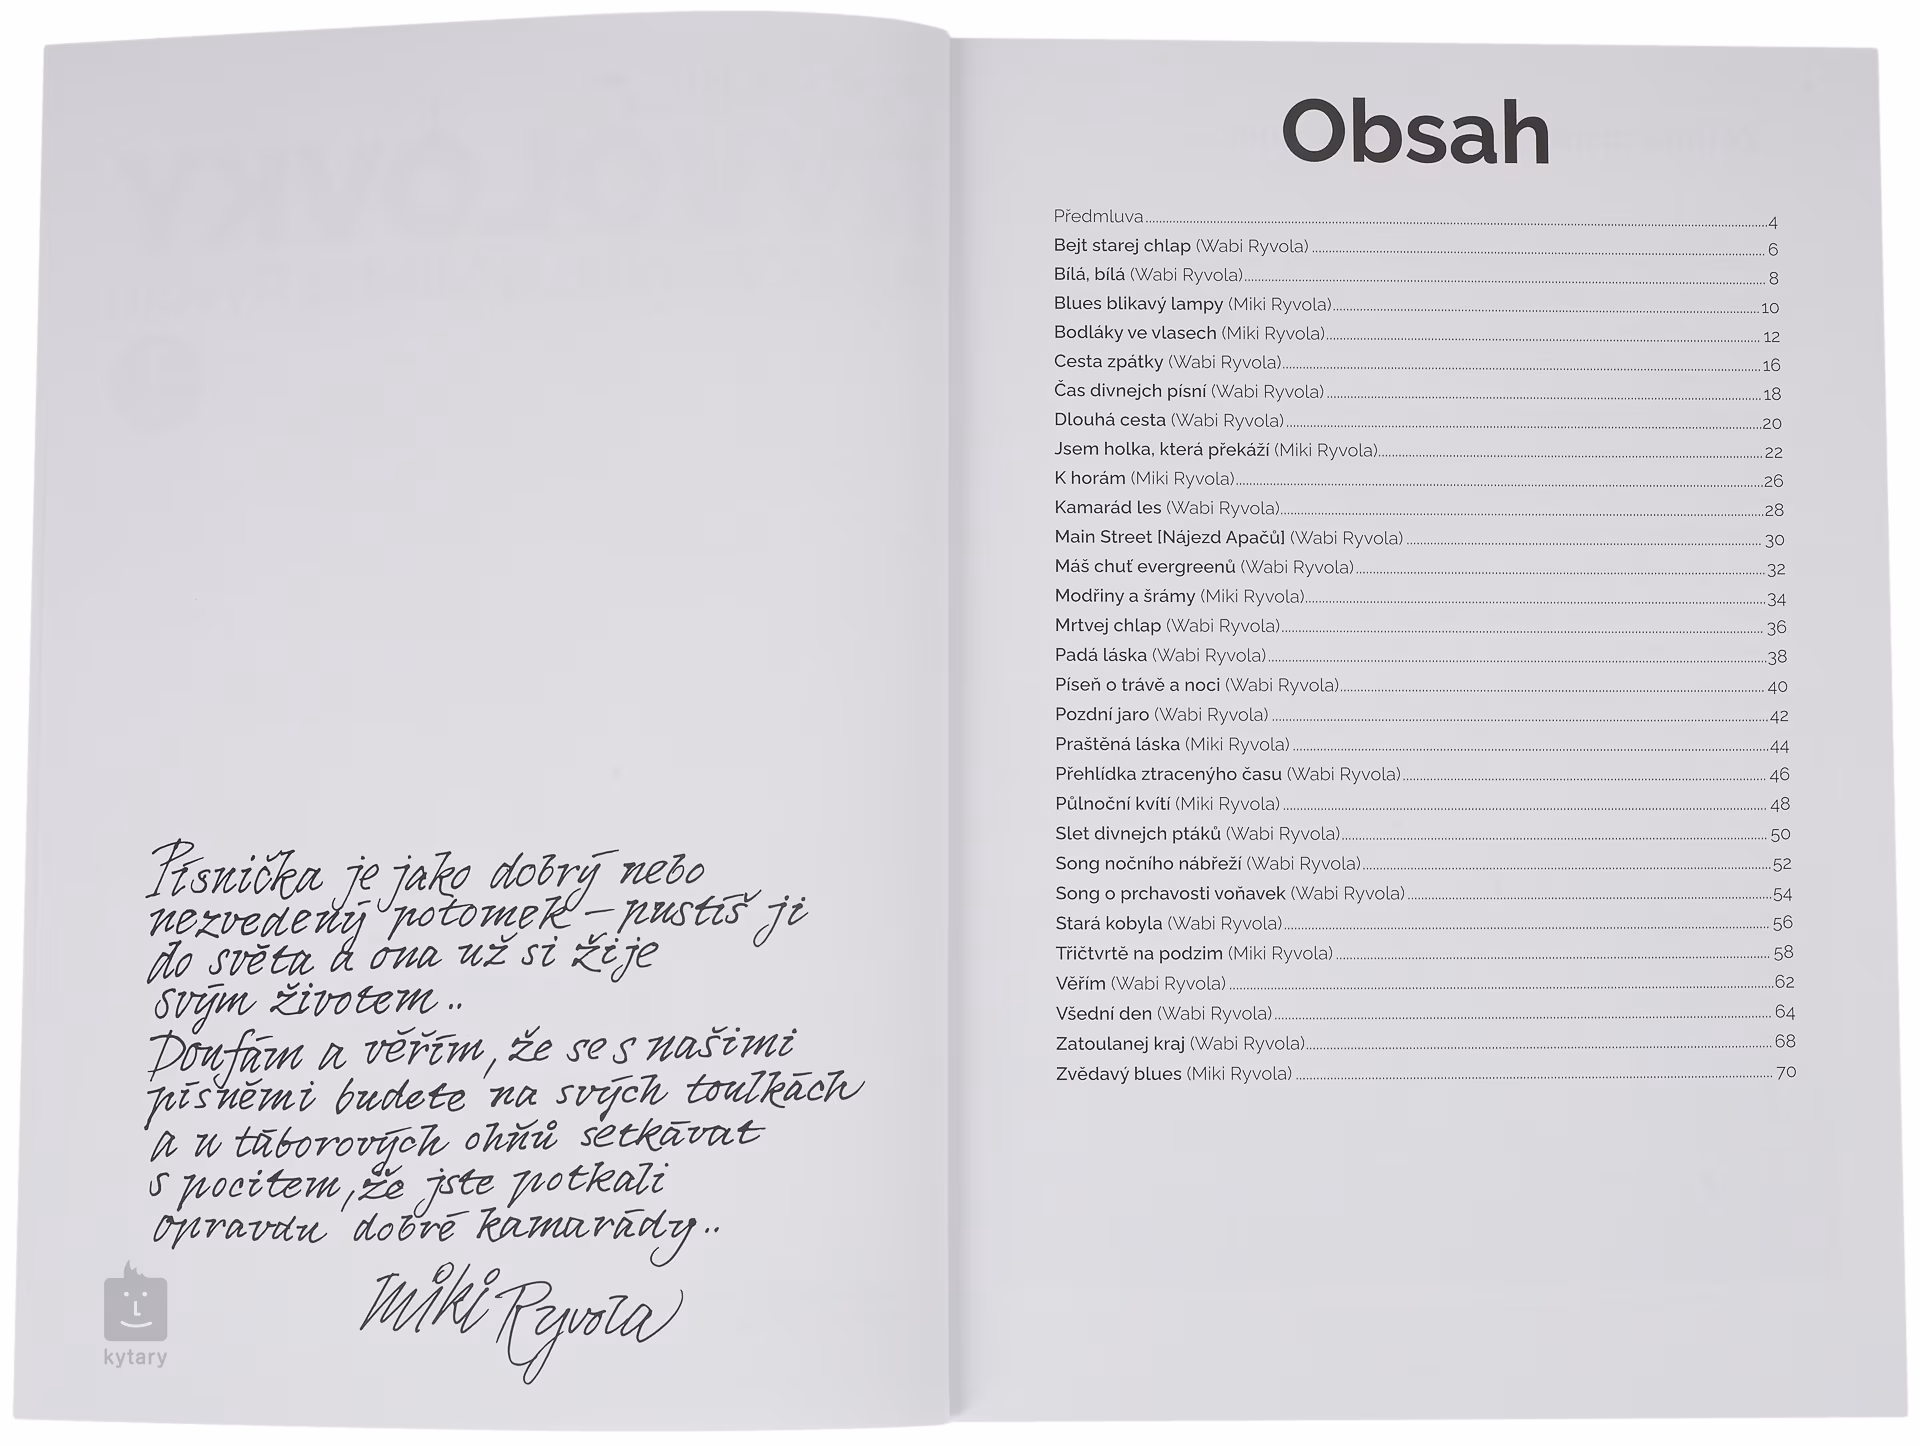 Písnička je jako dobrý nebo
nezvedený potomek – pustíš ji
do světa a ona už si žije
svým životem..
Doufám a věřím, že se s našimi
písněmi budete na svých toulkách
a u táborových ohňů setkávat
s pocitem, že jste potkali
opravdu dobré kamarády..
Miki Ryvola
kytary
Obsah
Předmluva 4
Bejt starej chlap (Wabi Ryvola) 6
Bílá, bílá (Wabi Ryvola) 8
Blues blikavý lampy (Miki Ryvola) 10
Bodláky ve vlasech (Miki Ryvola) 12
Cesta zpátky (Wabi Ryvola) 16
Čas divnejch písní (Wabi Ryvola) 18
Dlouhá cesta (Wabi Ryvola) 20
Jsem holka, která překáží (Miki Ryvola) 22
K horám (Miki Ryvola) 26
Kamarád les (Wabi Ryvola) 28
Main Street [Nájezd Apačů] (Wabi Ryvola) 30
Máš chuť evergreenů (Wabi Ryvola) 32
Modřiny a šrámy (Miki Ryvola) 34
Mrtvej chlap (Wabi Ryvola) 36
Padá láska (Wabi Ryvola) 38
Píseň o trávě a noci (Wabi Ryvola) 40
Pozdní jaro (Wabi Ryvola) 42
Praštěná láska (Miki Ryvola) 44
Přehlídka ztracenýho času (Wabi Ryvola) 46
Půlnoční kvítí (Miki Ryvola) 48
Slet divnejch ptáků (Wabi Ryvola) 50
Song nočního nábřeží (Wabi Ryvola) 52
Song o prchavosti voňavek (Wabi Ryvola) 54
Stará kobyla (Wabi Ryvola) 56
Třičtvrtě na podzim (Miki Ryvola) 58
Věřím (Wabi Ryvola) 62
Všední den (Wabi Ryvola) 64
Zatoulanej kraj (Wabi Ryvola) 68
Zvědavý blues (Miki Ryvola) 70